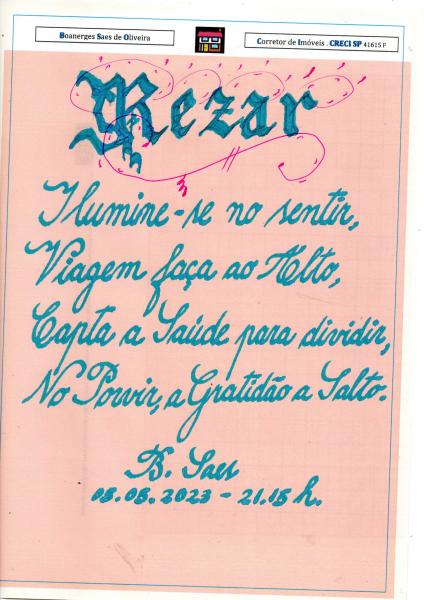 Boanerges Saes de Oliveira
Corretor de Imóveis . CRECI SP 41615 F
Rezar
Ilumine-se no sentir,
Viagem faça ao Alto,
Capta a Saúde para dividir,
No Porvir, a Gratidão a Salto.
B. Saes
05.05.2023 - 21.15 h.